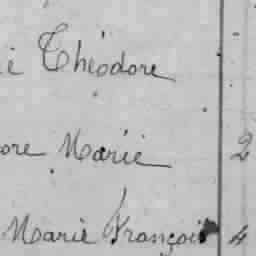 i Théodore
ore Marie 2
Marie François 4